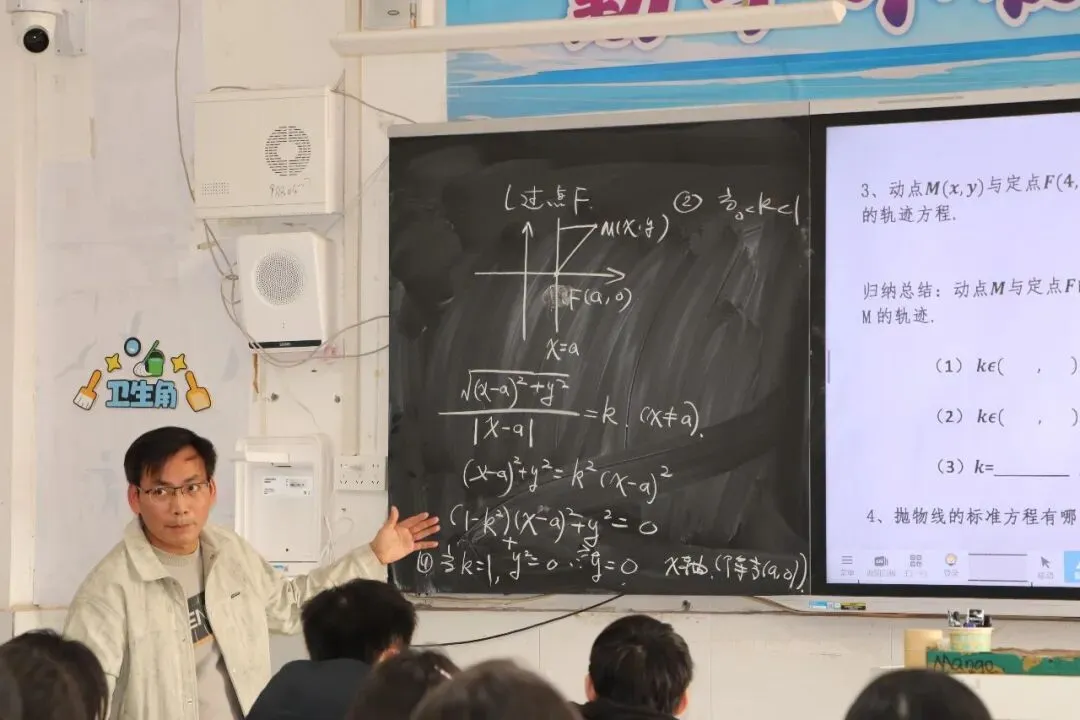 卫生角
l过点F.
② 当0<k<1
M(x,y)
F(a,0)
x=a
√((x-a)²+y²)
/|x-a| =k. (x≠a).
(x-a)²+y²=k²(x-a)²
(1-k²)(x-a)²+y²=0
当k=1, y²=0 ∴y=0 x轴.(除(a,0))
3、动点M(x,y)与定点F(4,
的轨迹方程.
归纳总结：动点M与定点F
M的轨迹.
(1) kϵ( , )
(2) kϵ( , )
(3) k=
4、抛物线的标准方程有哪
Mango